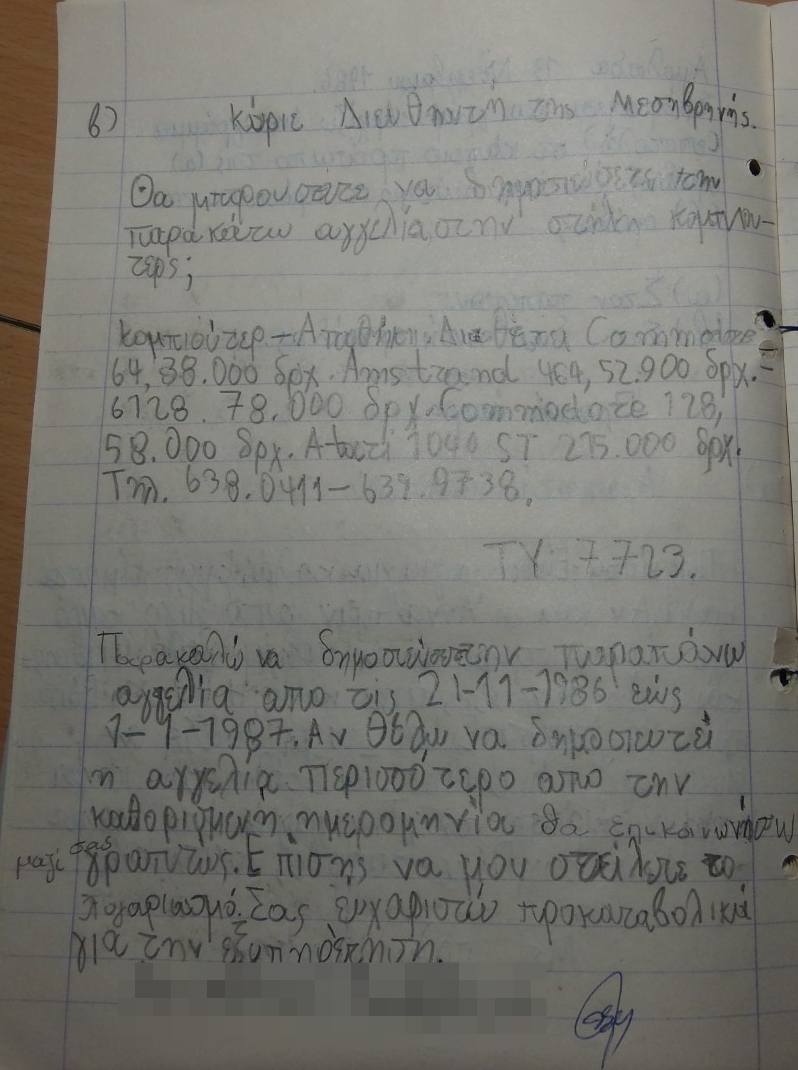 β) Κύριε Διευθηντη της Μεσηβρηνής.
Θα μπορουσατε να δημοσιευσετε την
παρακάτω αγγελία στην στήλη κομπιου-
τερς;
Κομπιούτερ - Αποθήκη. Διαθέτει Commodore
64, 38.000 δρχ. Amstrand 464, 52.900 δρχ. -
6128. 78.000 δρχ. Commodore 128,
58.000 δρχ. Atari 1040 ST 215.000 δρχ.
Τηλ. 638.0411 - 639.9738.
ΤΥ. 7723.
Παρακαλώ να την παραπάνω
αγγελία απο τις 21-11-1986 εώς
1-1-1987. Αν θέλω να δημοσιωτεί
η αγγελία περισσότερο απο την
ημερομηνία θα επικοινωνήσω
μαζί σας γραπτώς. Επίσης να μου στείλετε το
λογαριασμό. Σας ευχαριστών προκαταβολικά
για την εξυπηρέτηση.